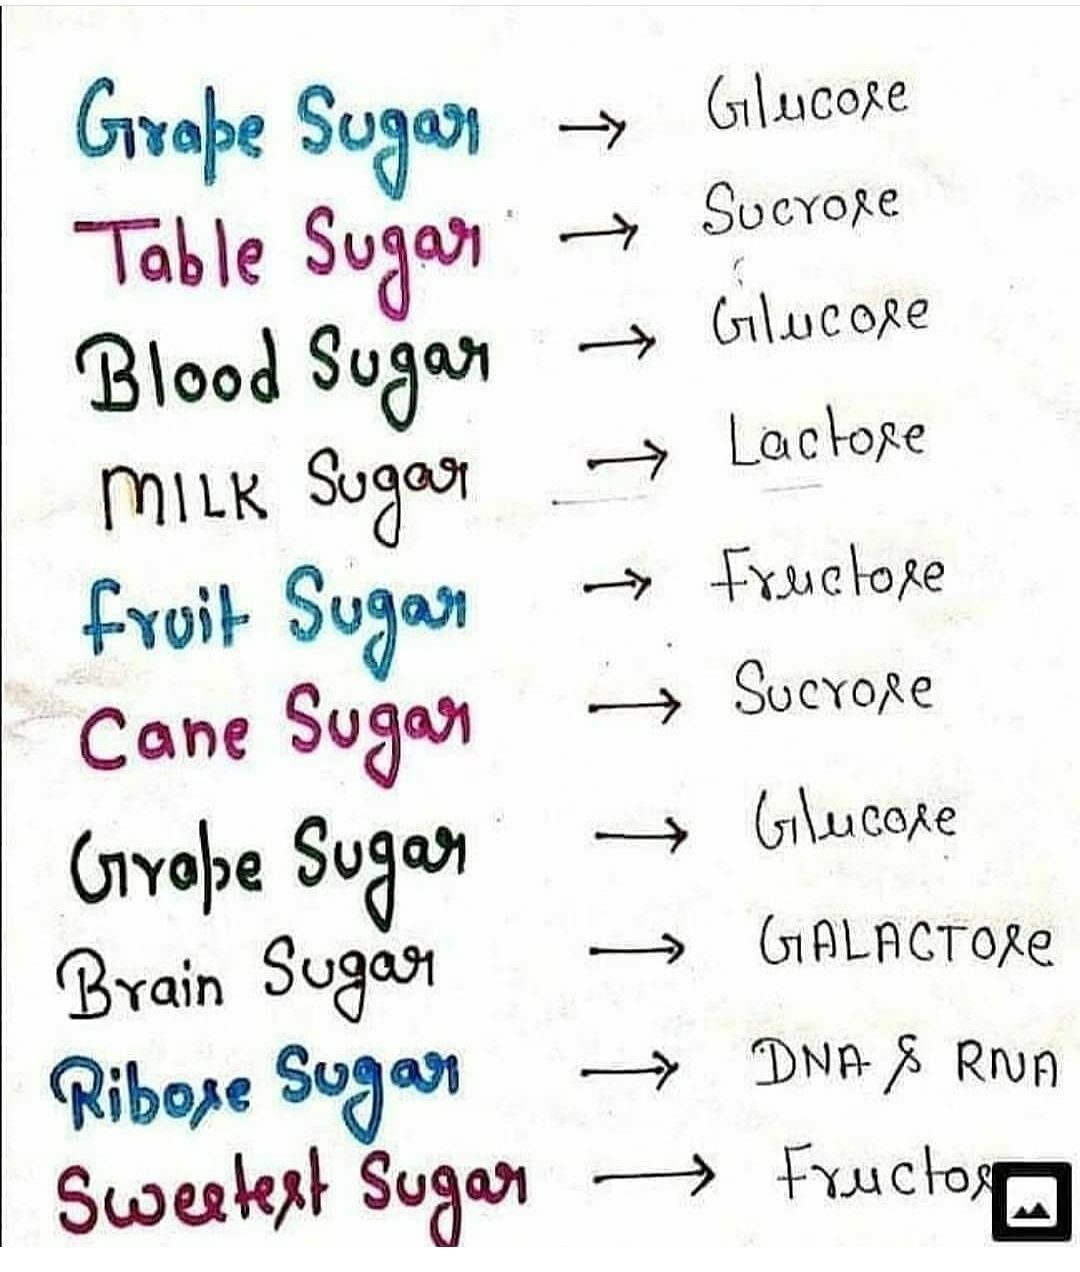 Grape Sugar → Glucose
Table Sugar → Sucrose
Blood Sugar → Glucose
MILK Sugar → Lactose
fruit Sugar → Fructose
Cane Sugar → Sucrose
Grape Sugar → Glucose
Brain Sugar → GALACTOse
Ribose Sugar → DNA & RNA
Sweetest Sugar → Fructos